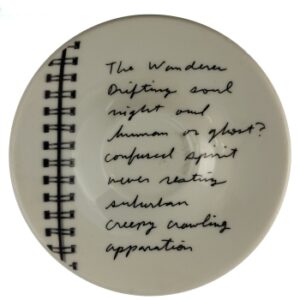 The Wanderer
Drifting soul
night owl
human or ghost?
confused spirit
never resting
suburban
creepy crawling
apparation